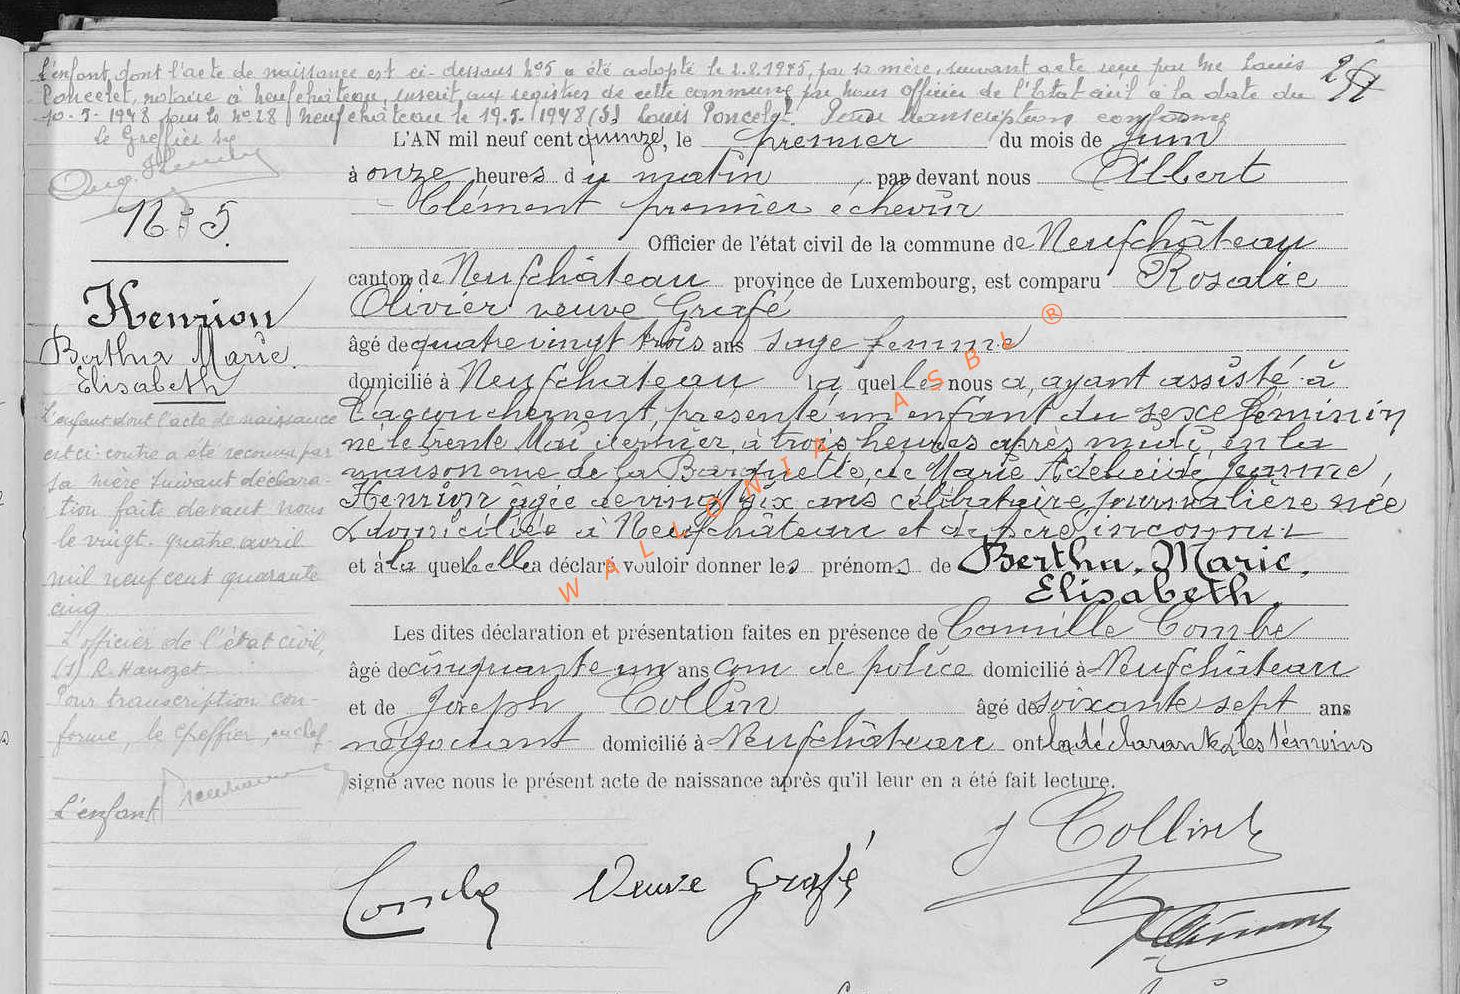 L'enfant dont l'acte de naissance est ci-dessous No 5 a été adopté le 2.2.1945, par sa mère, suivant acte reçu par Me Louis
Poncelet, notaire à Neufchâteau, inscrit aux registres de cette commune par nous Officier de l'Etat civil à la date du
10-5-1948 sous le No 28 Neufchâteau le 19.5.1948 (S) Louis Poncelet. Pour transcription conforme
le Greffier
No 5.
Henrion
Bertha Marie
Elisabeth
L'enfant dont l'acte de naissance
est ci-contre a été reconnu par
sa mère suivant déclara-
tion faite devant nous
le vingt-quatre avril
mil neuf cent quarante
cinq
L'officier de l'état civil,
(s) R. Hanozet
Pour transcription con-
forme, le Greffier en chef
L'enfant
L'AN mil neuf cent quinze, le premier du mois de Juin
à onze heures du matin, par devant nous Albert
Clément premier échevin
Officier de l'état civil de la commune de Neufchâteau
canton de Neufchâteau province de Luxembourg, est comparu Rosalie
Olivier veuve Grafé
âgé de quatre vingt trois ans sage femme
domicilié à Neufchateau laquelle nous a, ayant assisté à
l'accouchement, présenté un enfant du sexe féminin
né le trente Mai dernier, à trois heures après midi, en la
maison rue de la Barquette, de Marie Adelaïde Jeanne
Henrion âgée de vingt six ans célibataire journalière née
& domiciliée à Neufchâteau et de père inconnu
et à laquelle elle a déclaré vouloir donner les prénoms de Bertha. Marie.
Elisabeth.
Les dites déclaration et présentation faites en présence de Camille Combe
âgé de cinquante un ans com de police domicilié à Neufchâteau
et de Joseph Collin âgé de soixante sept ans
négociant domicilié à Neufchâteau ont la déclarante & les témoins
signé avec nous le présent acte de naissance après qu'il leur en a été fait lecture.
J Collin
Combe Veuve Grafé
WALLONIA ASBL ®